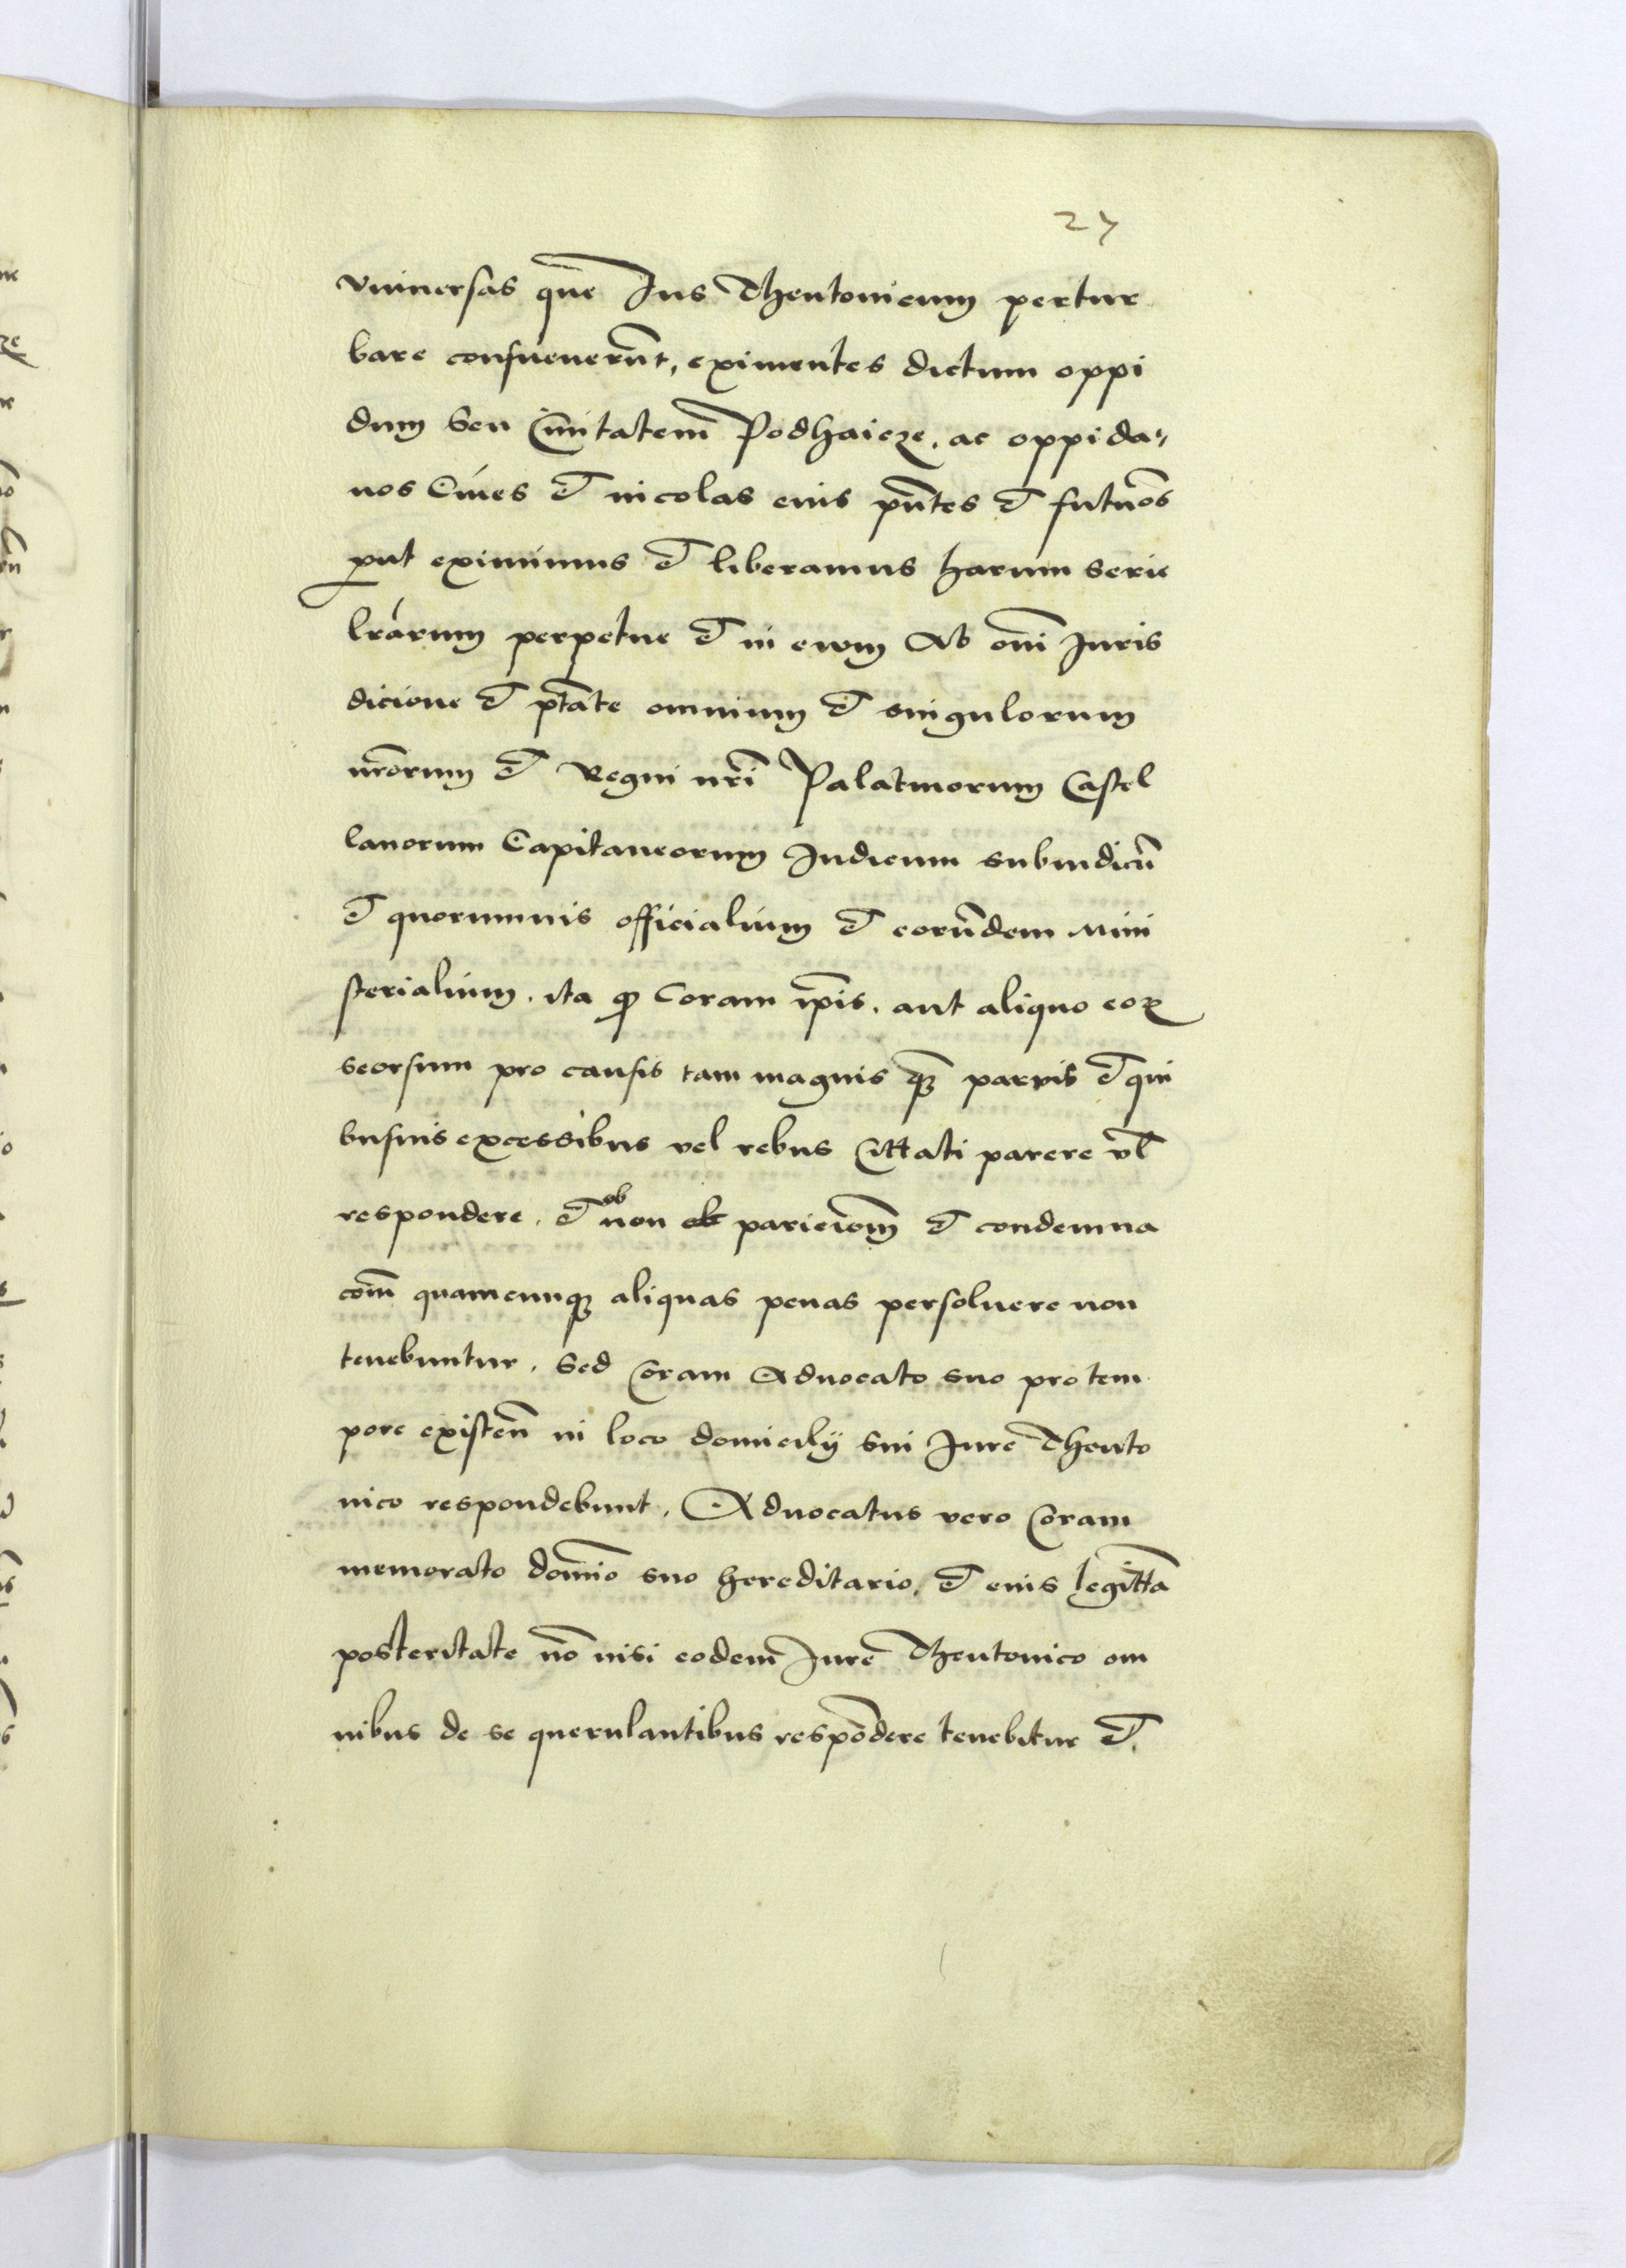 27
vniuersas que Ius Theutonicum pertur
bare consueuerūt, eximentes dictum oppi
dum seu Ciuitatem Podhaicze, ac oppida-
nos Ciues et incolas eius pn̄tes et futuros
put eximimus et liberamus harum serie
lrārum perpetue et in ewm Ab oni Juris
dicione et ptate omnium et singulorum
nrorum et Regni nri Palatinorum Castel
lanorum Capitaneorum Judicum subiudicū
et quorumuis officialium et eorūdem Mini
sterialium, ita q Coram ipis, aut aliquo eoꝝ
seorsum pro causis tam magnis qȝ paruis et qui
busuis excessibus vel rebus Cittati parere vl
respondere, et ob non ob pariciom et condemna
com quamcunqȝ aliquas penas persoluere non
tenebuntur, Sed Coram Aduocato suo pro tem
pore existen in loco domicilij sui Jure Theuto
nico respondebunt, Aduocatus vero Coram
memorato domio suo hereditario, et eius legitta
posteritate nō nisi eodem Jure Theutonico om
nibus de se querulantibus respōdere tenebitur et